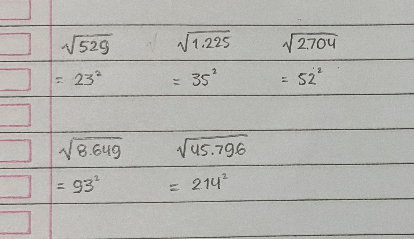 √529 √1.225 √2.704
= 23² = 35² = 52²
√8.649 √45.796
= 93² = 214²